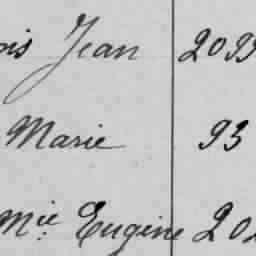 ois Jean 2099
Marie 93
Mie Eugène 202